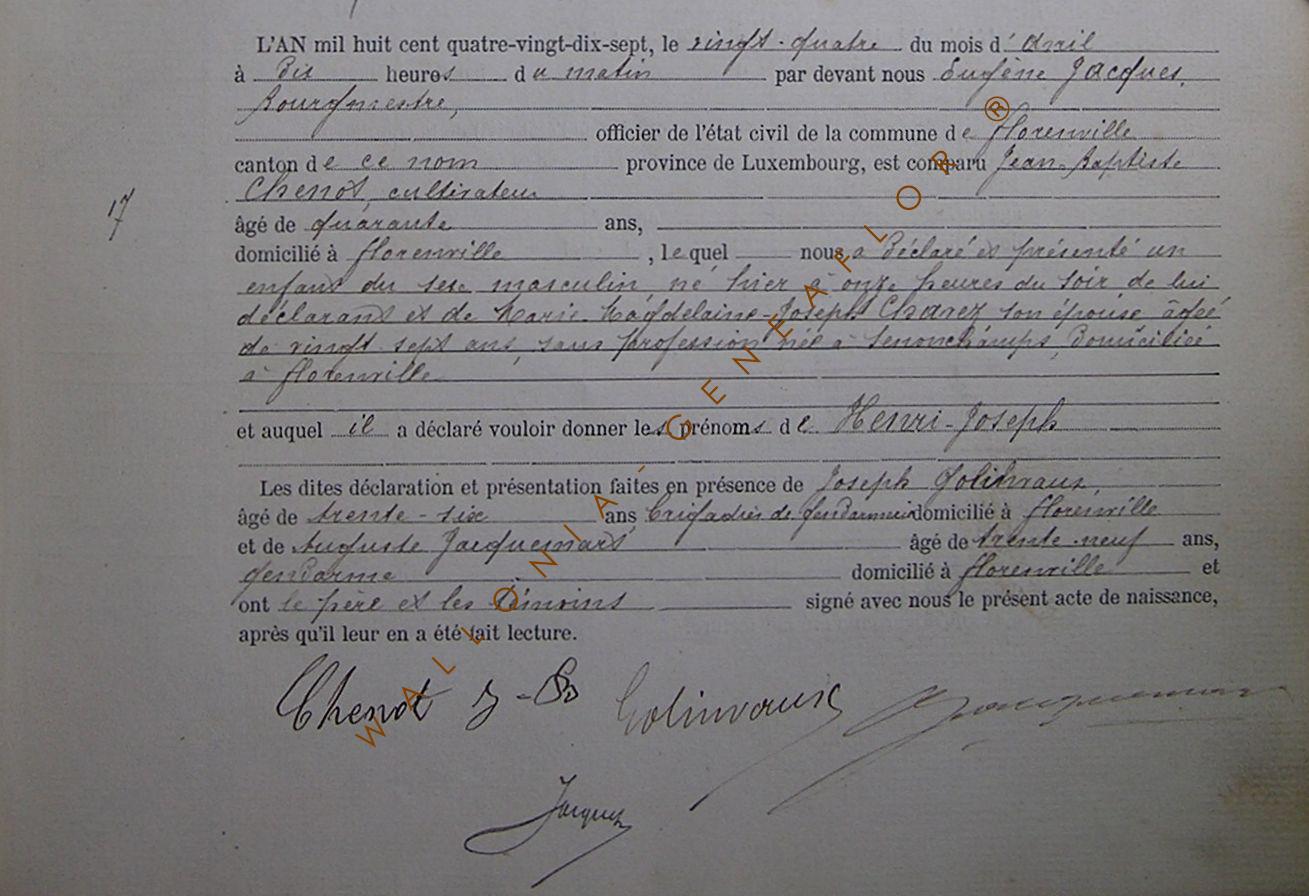 L'AN mil huit cent quatre-vingt-dix-sept, le vingt-quatre du mois d'avril
à dix heures du matin par devant nous Eugène Jacques,
Bourgmestre,
officier de l'état civil de la commune de Florenville
canton de ce nom province de Luxembourg, est comparu Jean-Baptiste
Chenot, cultivateur
17
âgé de quarante ans,
domicilié à Florenville, lequel nous a déclaré et présenté un
enfant du sexe masculin né hier à onze heures du soir de lui
déclarant et de Marie-Magdelaine-Joseph Charez son épouse âgée
de vingt sept ans, sans profession née à Senonchamps, domiciliée
à Florenville
et auquel il a déclaré vouloir donner les prénoms de Henri-Joseph
Les dites déclaration et présentation faites en présence de Joseph Golinvaux,
âgé de trente-six ans, brigadier de gendarmerie domicilié à Florenville
et de Auguste Jacquemart âgé de trente-neuf ans,
gendarme domicilié à Florenville et
ont le père et les témoins signé avec nous le présent acte de naissance,
après qu'il leur en a été fait lecture.
Chenot J-B Golinvaux Jacquemart
Jacques
WALLONIA - GENEAFLOR ®